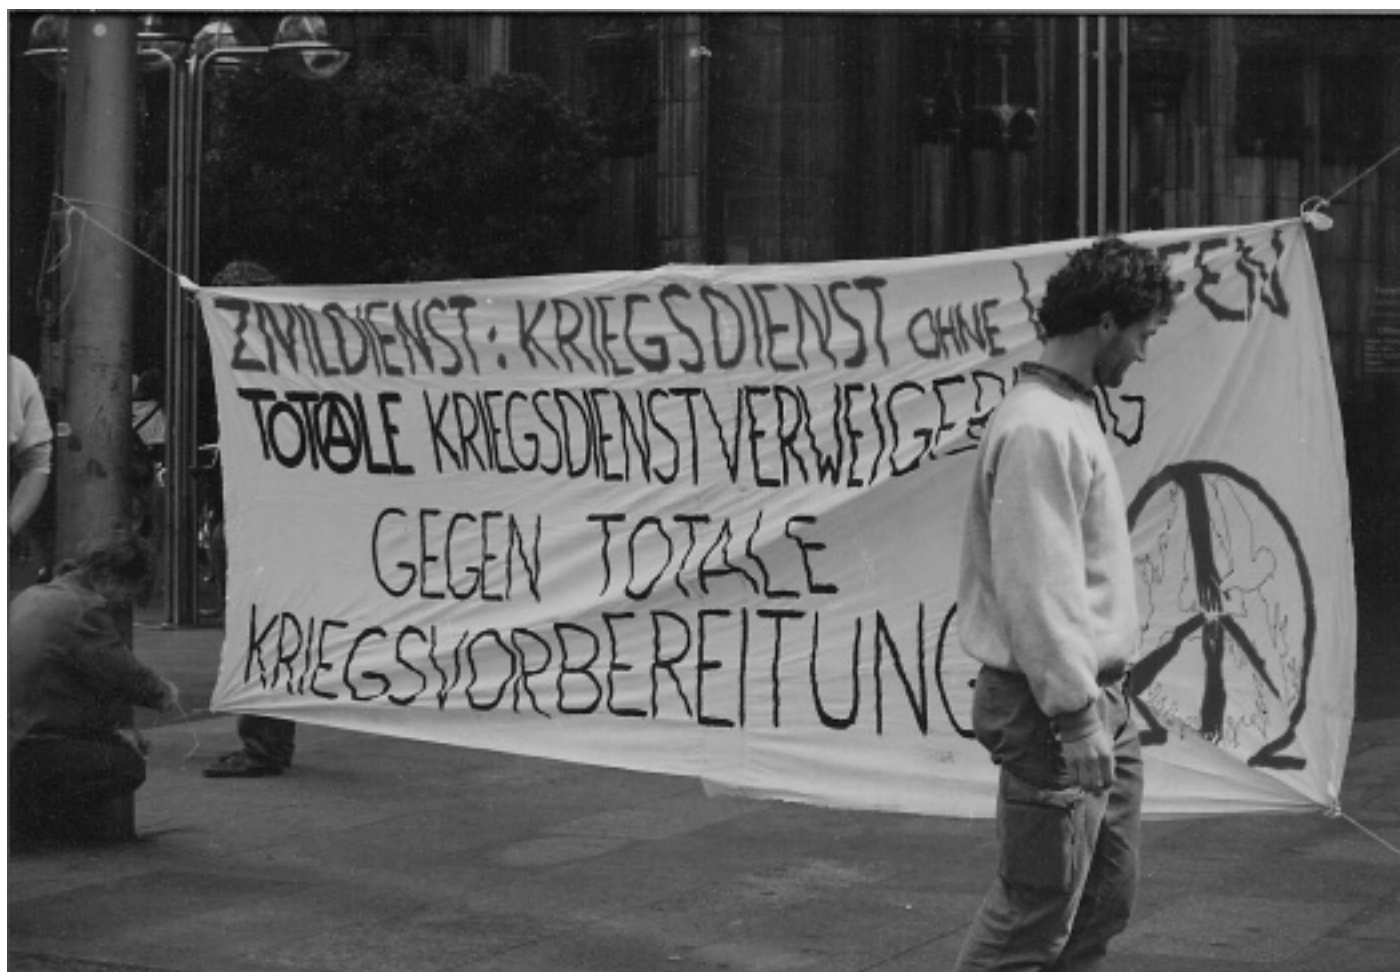 ZIVILDIENST: KRIEGSDIENST OHNE WAFFEN
TOTALE KRIEGSDIENSTVERWEIGERUNG
GEGEN TOTALE
KRIEGSVORBEREITUNG